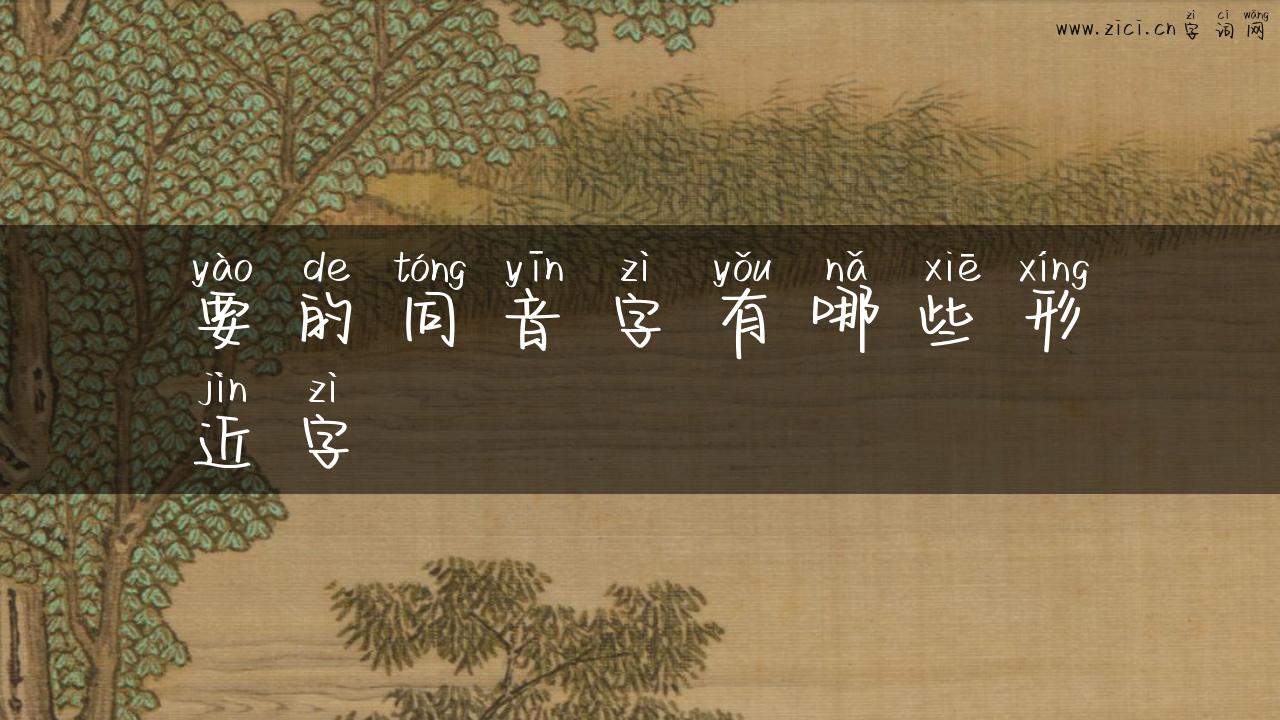 zì cí wǎng
www.zici.cn字词网
yào de tóng yīn zì yǒu nǎ xiē xíng
要的同音字有哪些形
jìn zì
近字